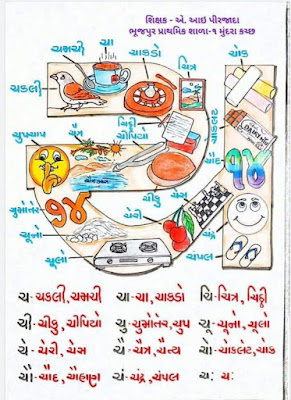 શિક્ષક - એ. આઇ પીરજાદા
ભૂજપુર પ્રાથમિક શાળા-૧ મુંદરા કચ્છ
ચમચી
ચા
ચાકડો
ચિત્ર
ચોક
ચકલી
ચિઠ્ઠી
ચુપચાપ
ચૈત્ર
ચીપિયો
ચાંદ
૧૪
ચુમોતેર
૭૪
ચીકુ
ચેસ
ચેરી
ચંદ્ર
ચૂનો
ચૂલો
ચંપલ
ચ- ચકલી, ચમચી ચા-ચા, ચાકડો ચિ-ચિત્ર, ચિઠ્ઠી
ચી- ચીકુ, ચીપિયો ચુ-ચુમોતેર, ચુપ ચૂ-ચૂનો, ચૂલો
ચે- ચેરી, ચેસ ચૈ-ચૈત્ર, ચૈન્ય ચો-ચોકલેટ, ચોક
ચૌ-ચૌદ, ચૌહાણ ચં-ચંદ્ર, ચંપલ ચઃ ચઃ